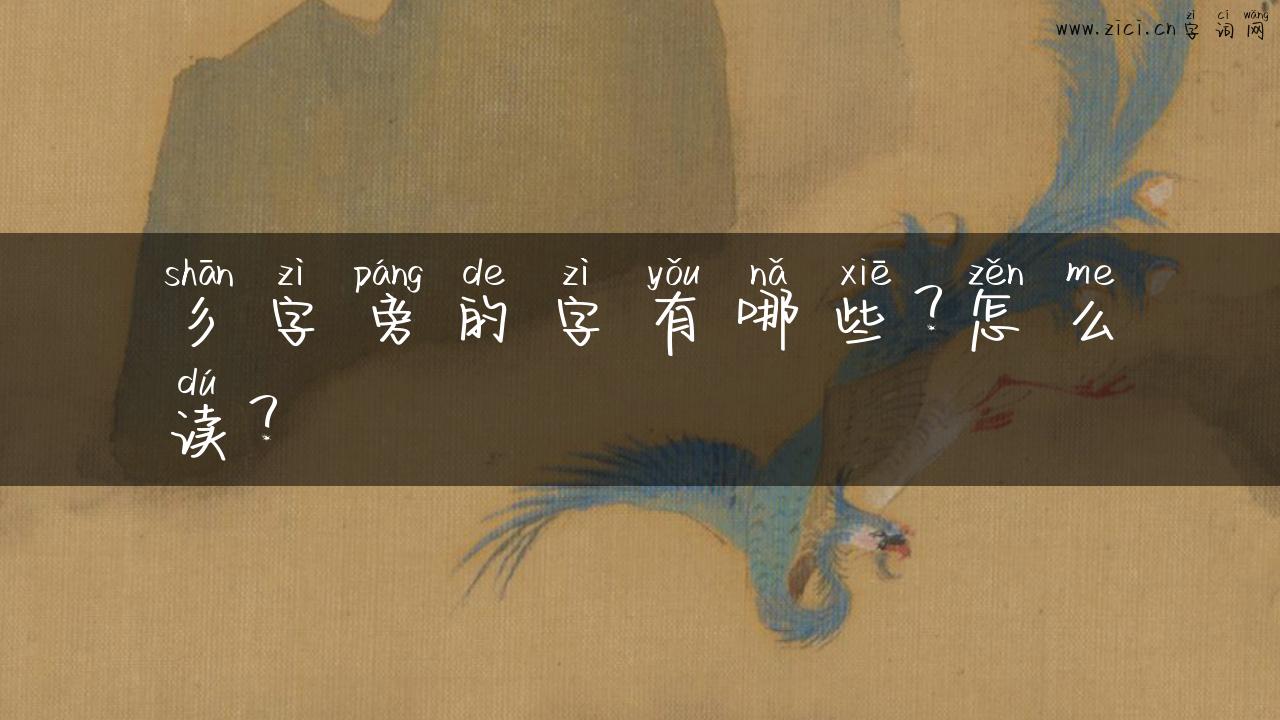 www.zici.cn 字词网
zì cí wǎng
shān zì páng de zì yǒu nǎ xiē zěn me
彡字旁的字有哪些?怎么
dú
读?